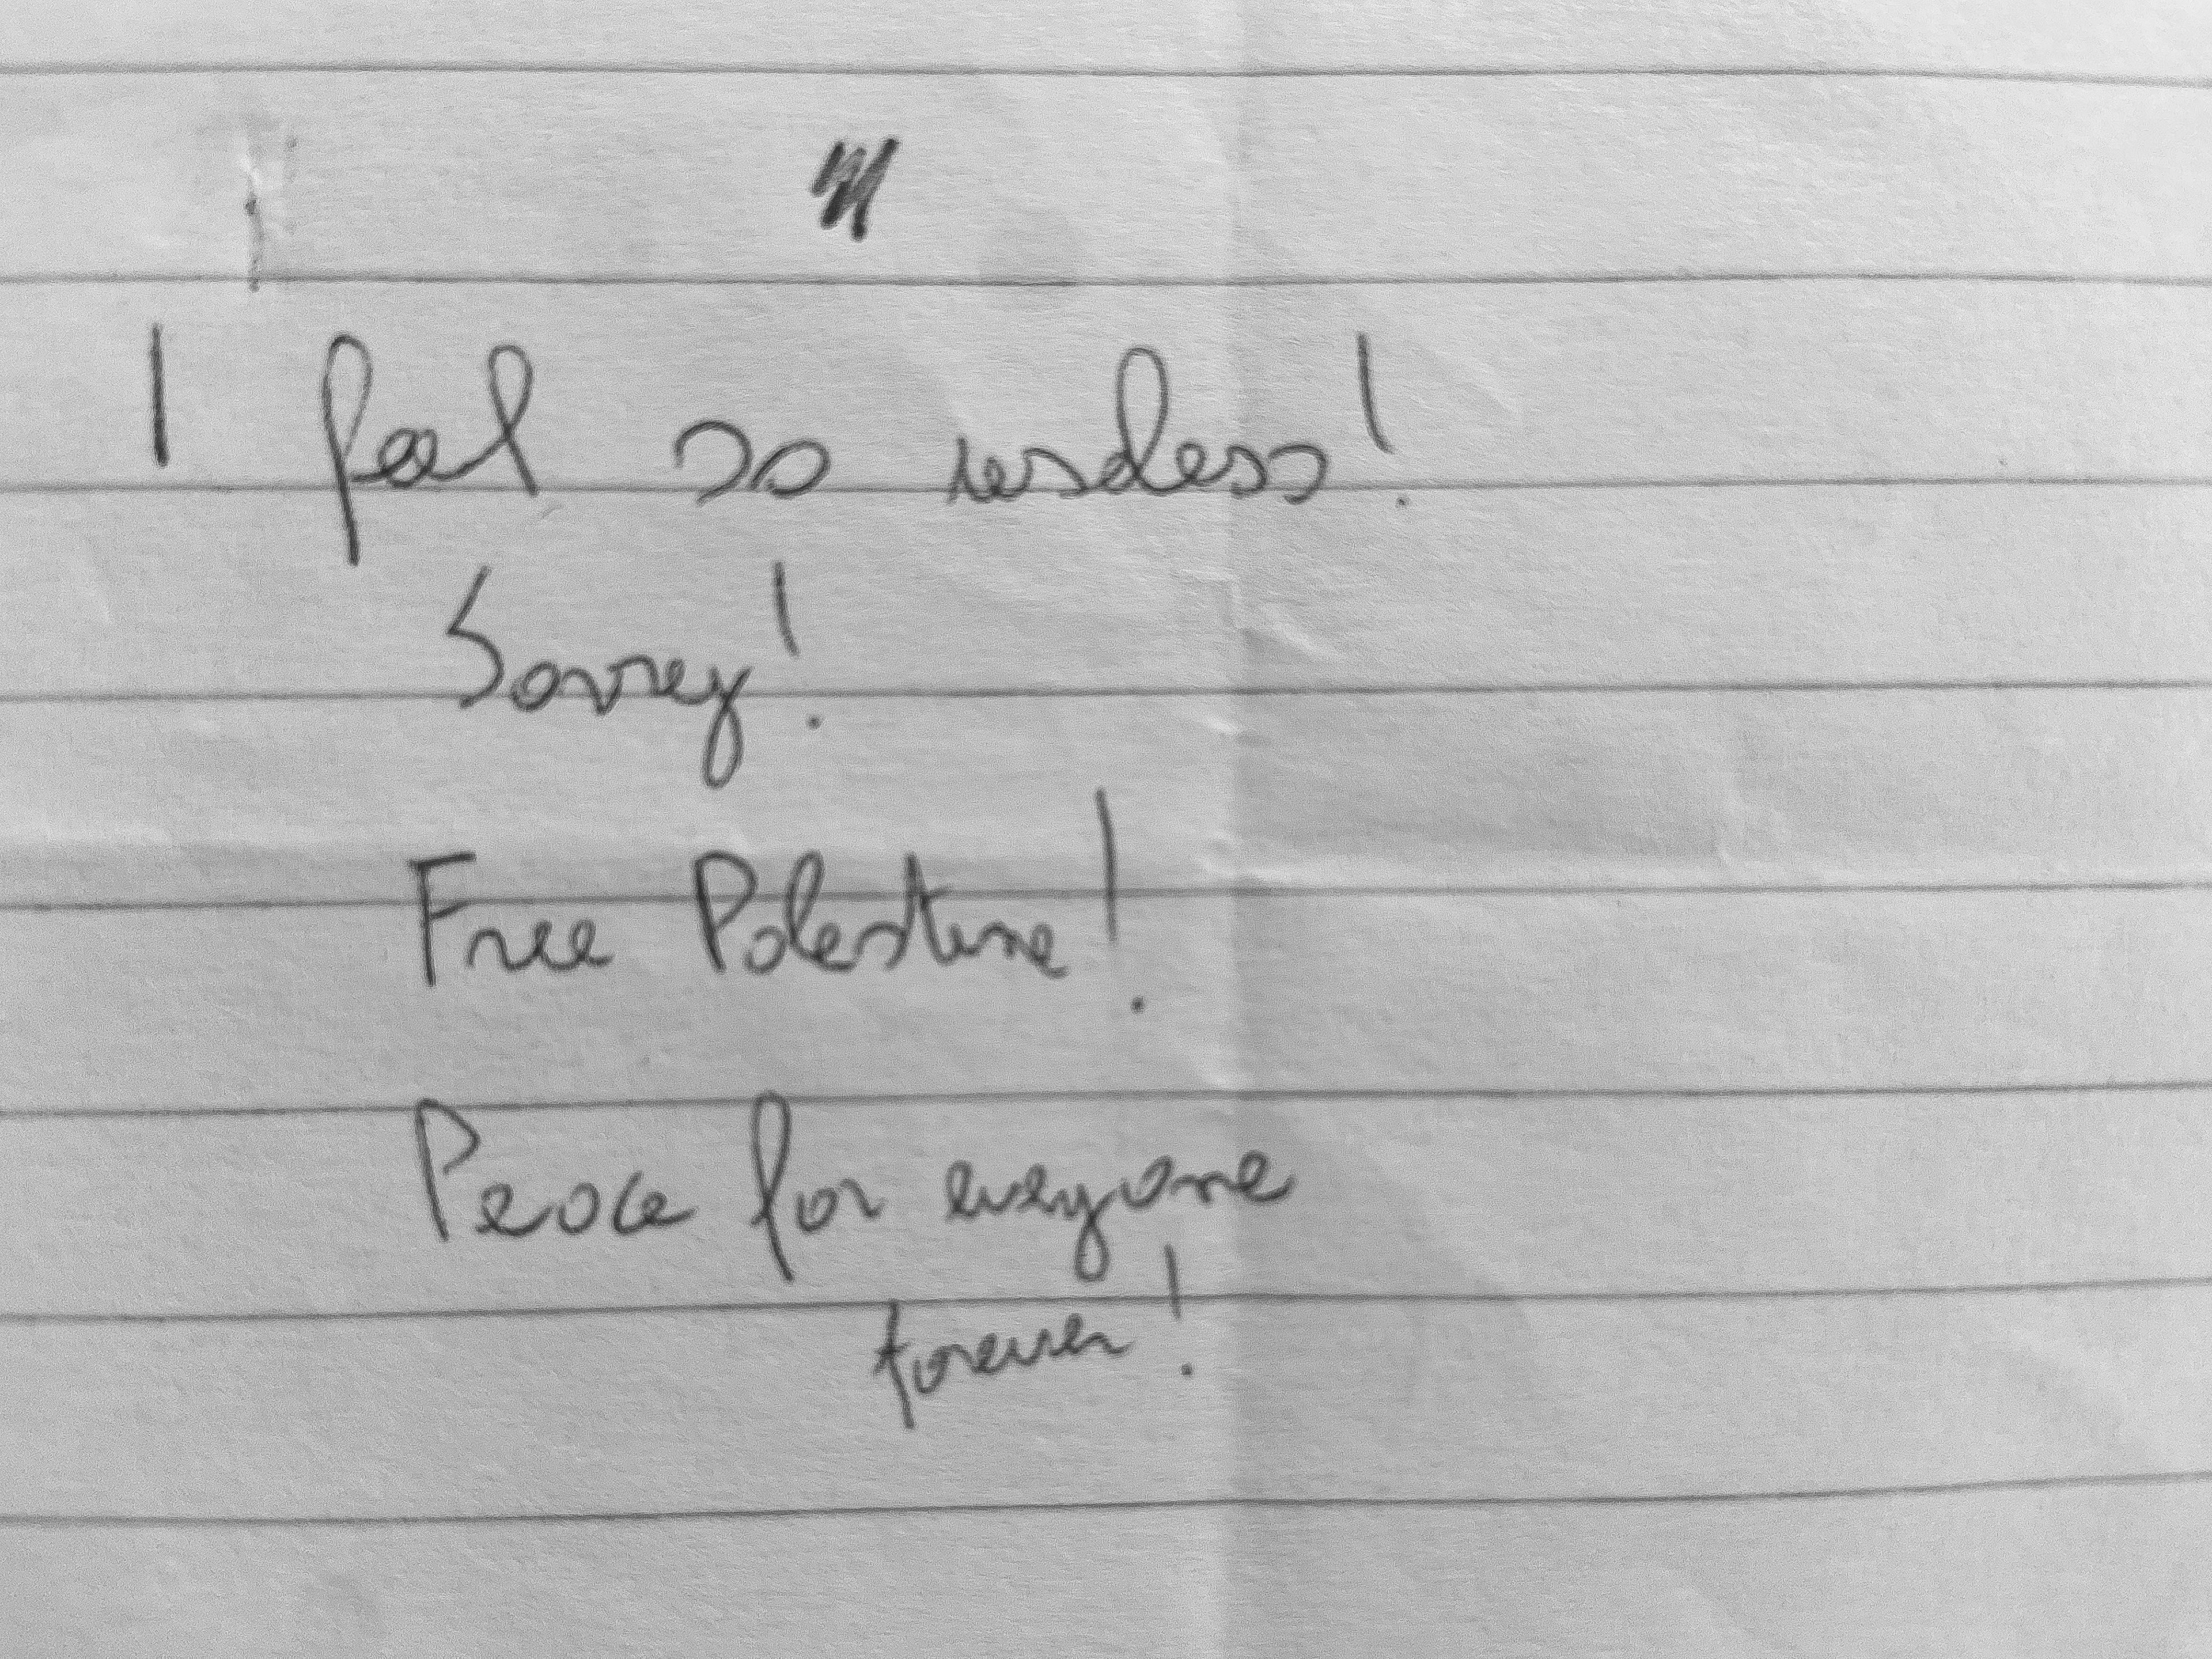 I feel so useless!
Sorrey!
Free Palestine!
Peace for everyone
forever!